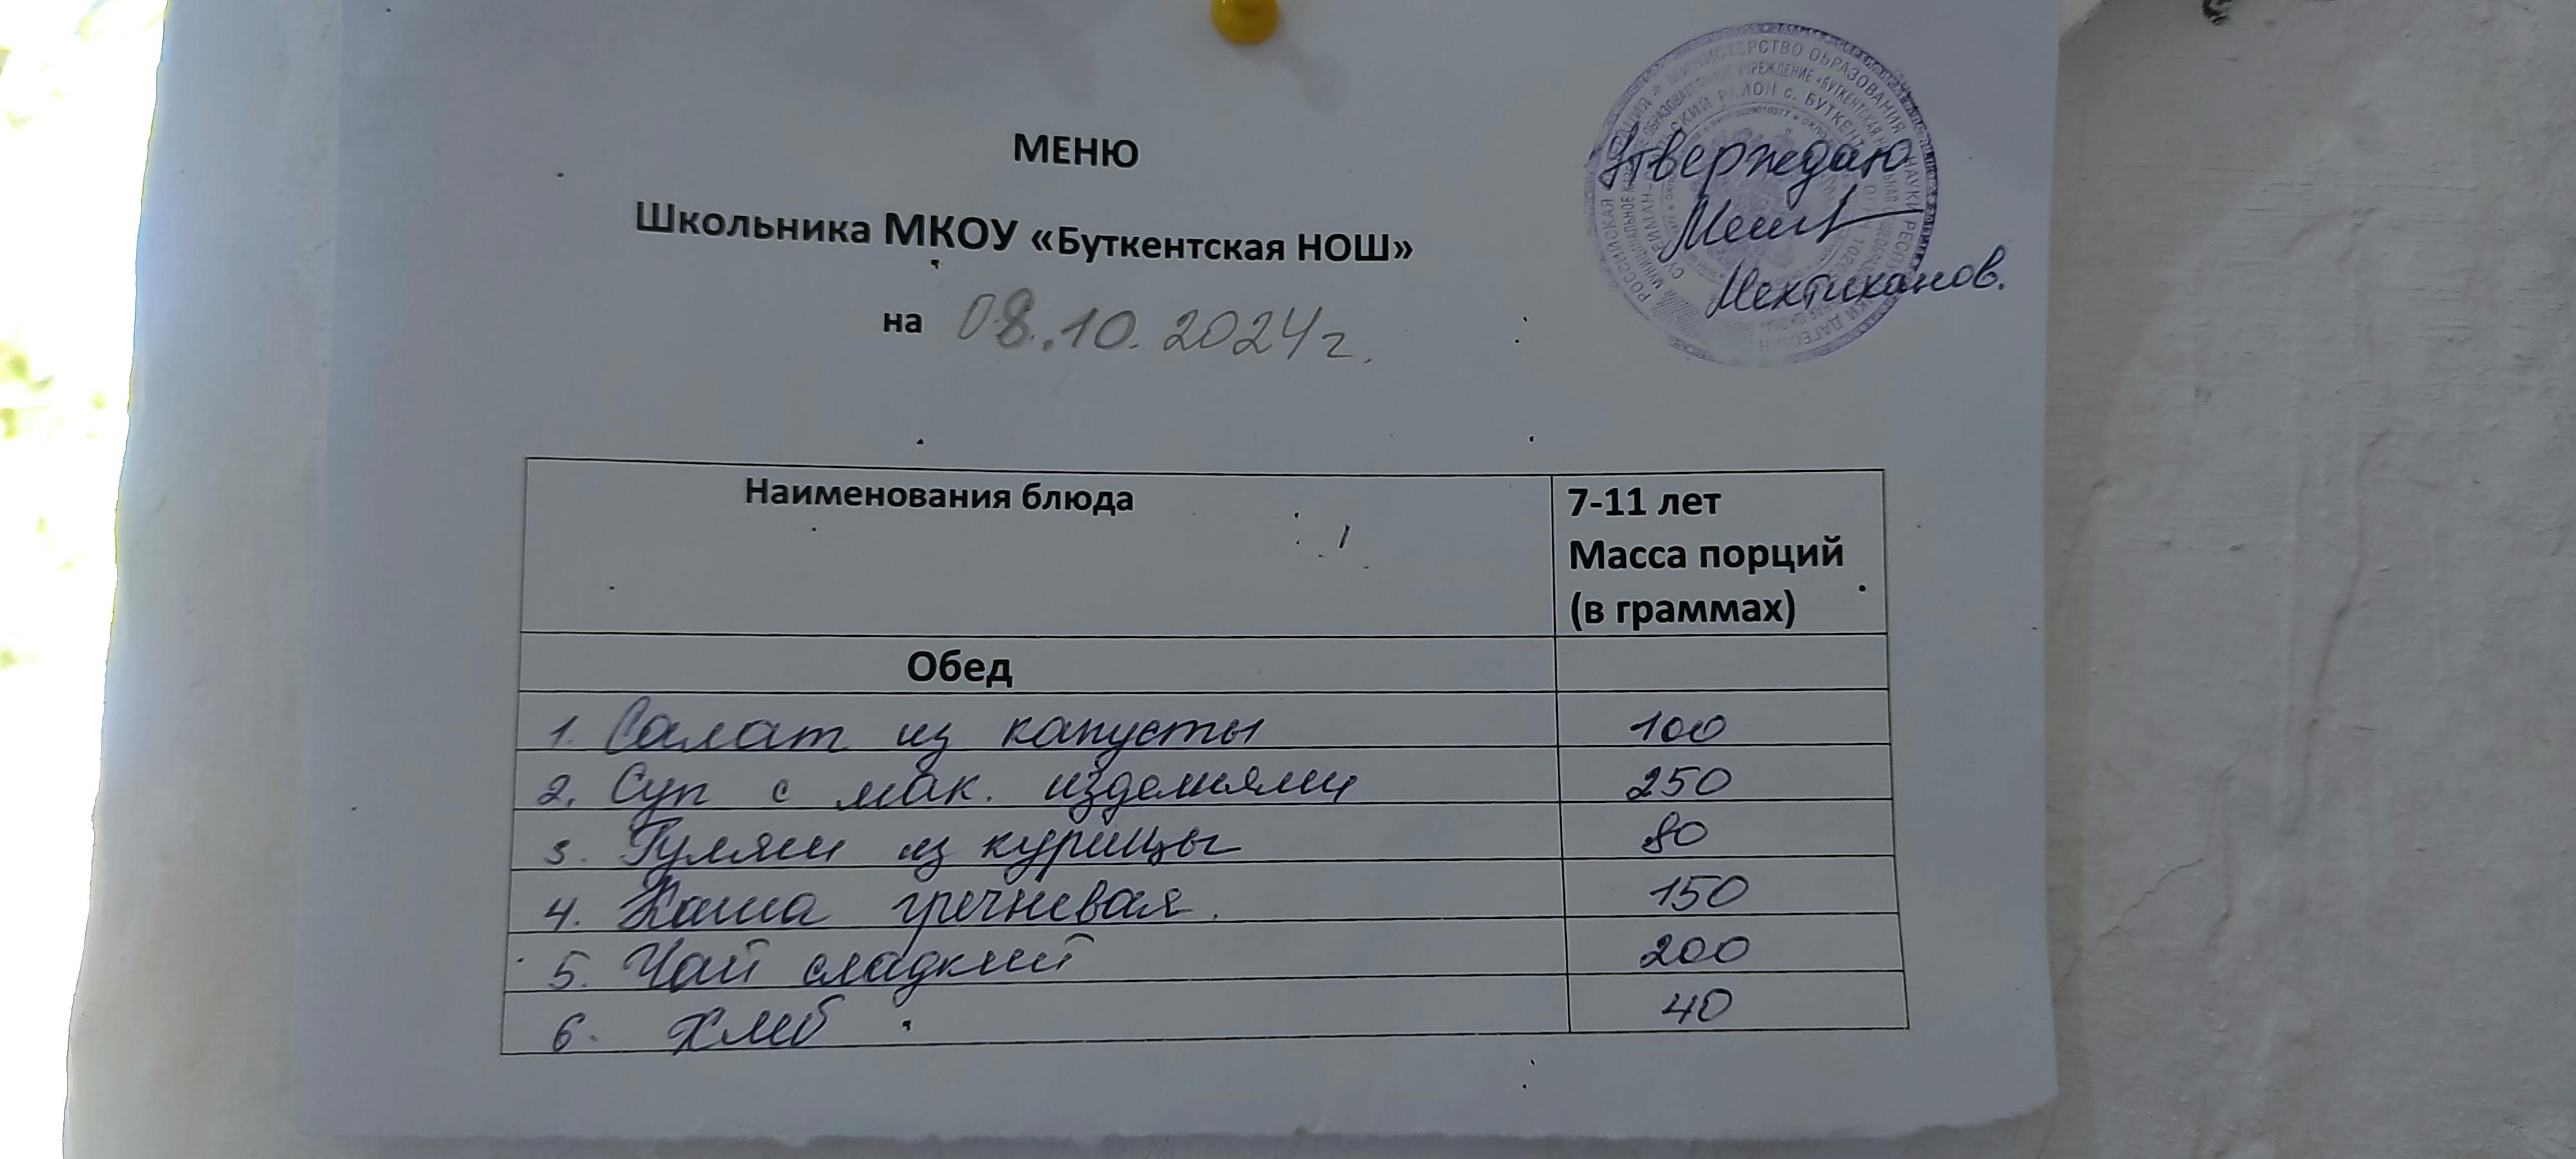 МЕНЮ
Школьника МКОУ «Буткентская НОШ»
на 08.10.2024г.
Утверждаю
Мектиханов.
РОССИЙСКАЯ ФЕДЕРАЦИЯ * МИНИСТЕРСТВО ОБРАЗОВАНИЯ И НАУКИ РЕСПУБЛИКИ ДАГЕСТАН
РАЙОН с. БУТКЕНТ
Наименования блюда
7-11 лет
Масса порций
(в граммах)
Обед
1. Салат из капусты 100
2. Суп с мак. изделиями 250
3. Гуляш из курицы 80
4. Каша гречневая. 150
5. Чай сладкий 200
6. Хлеб 40